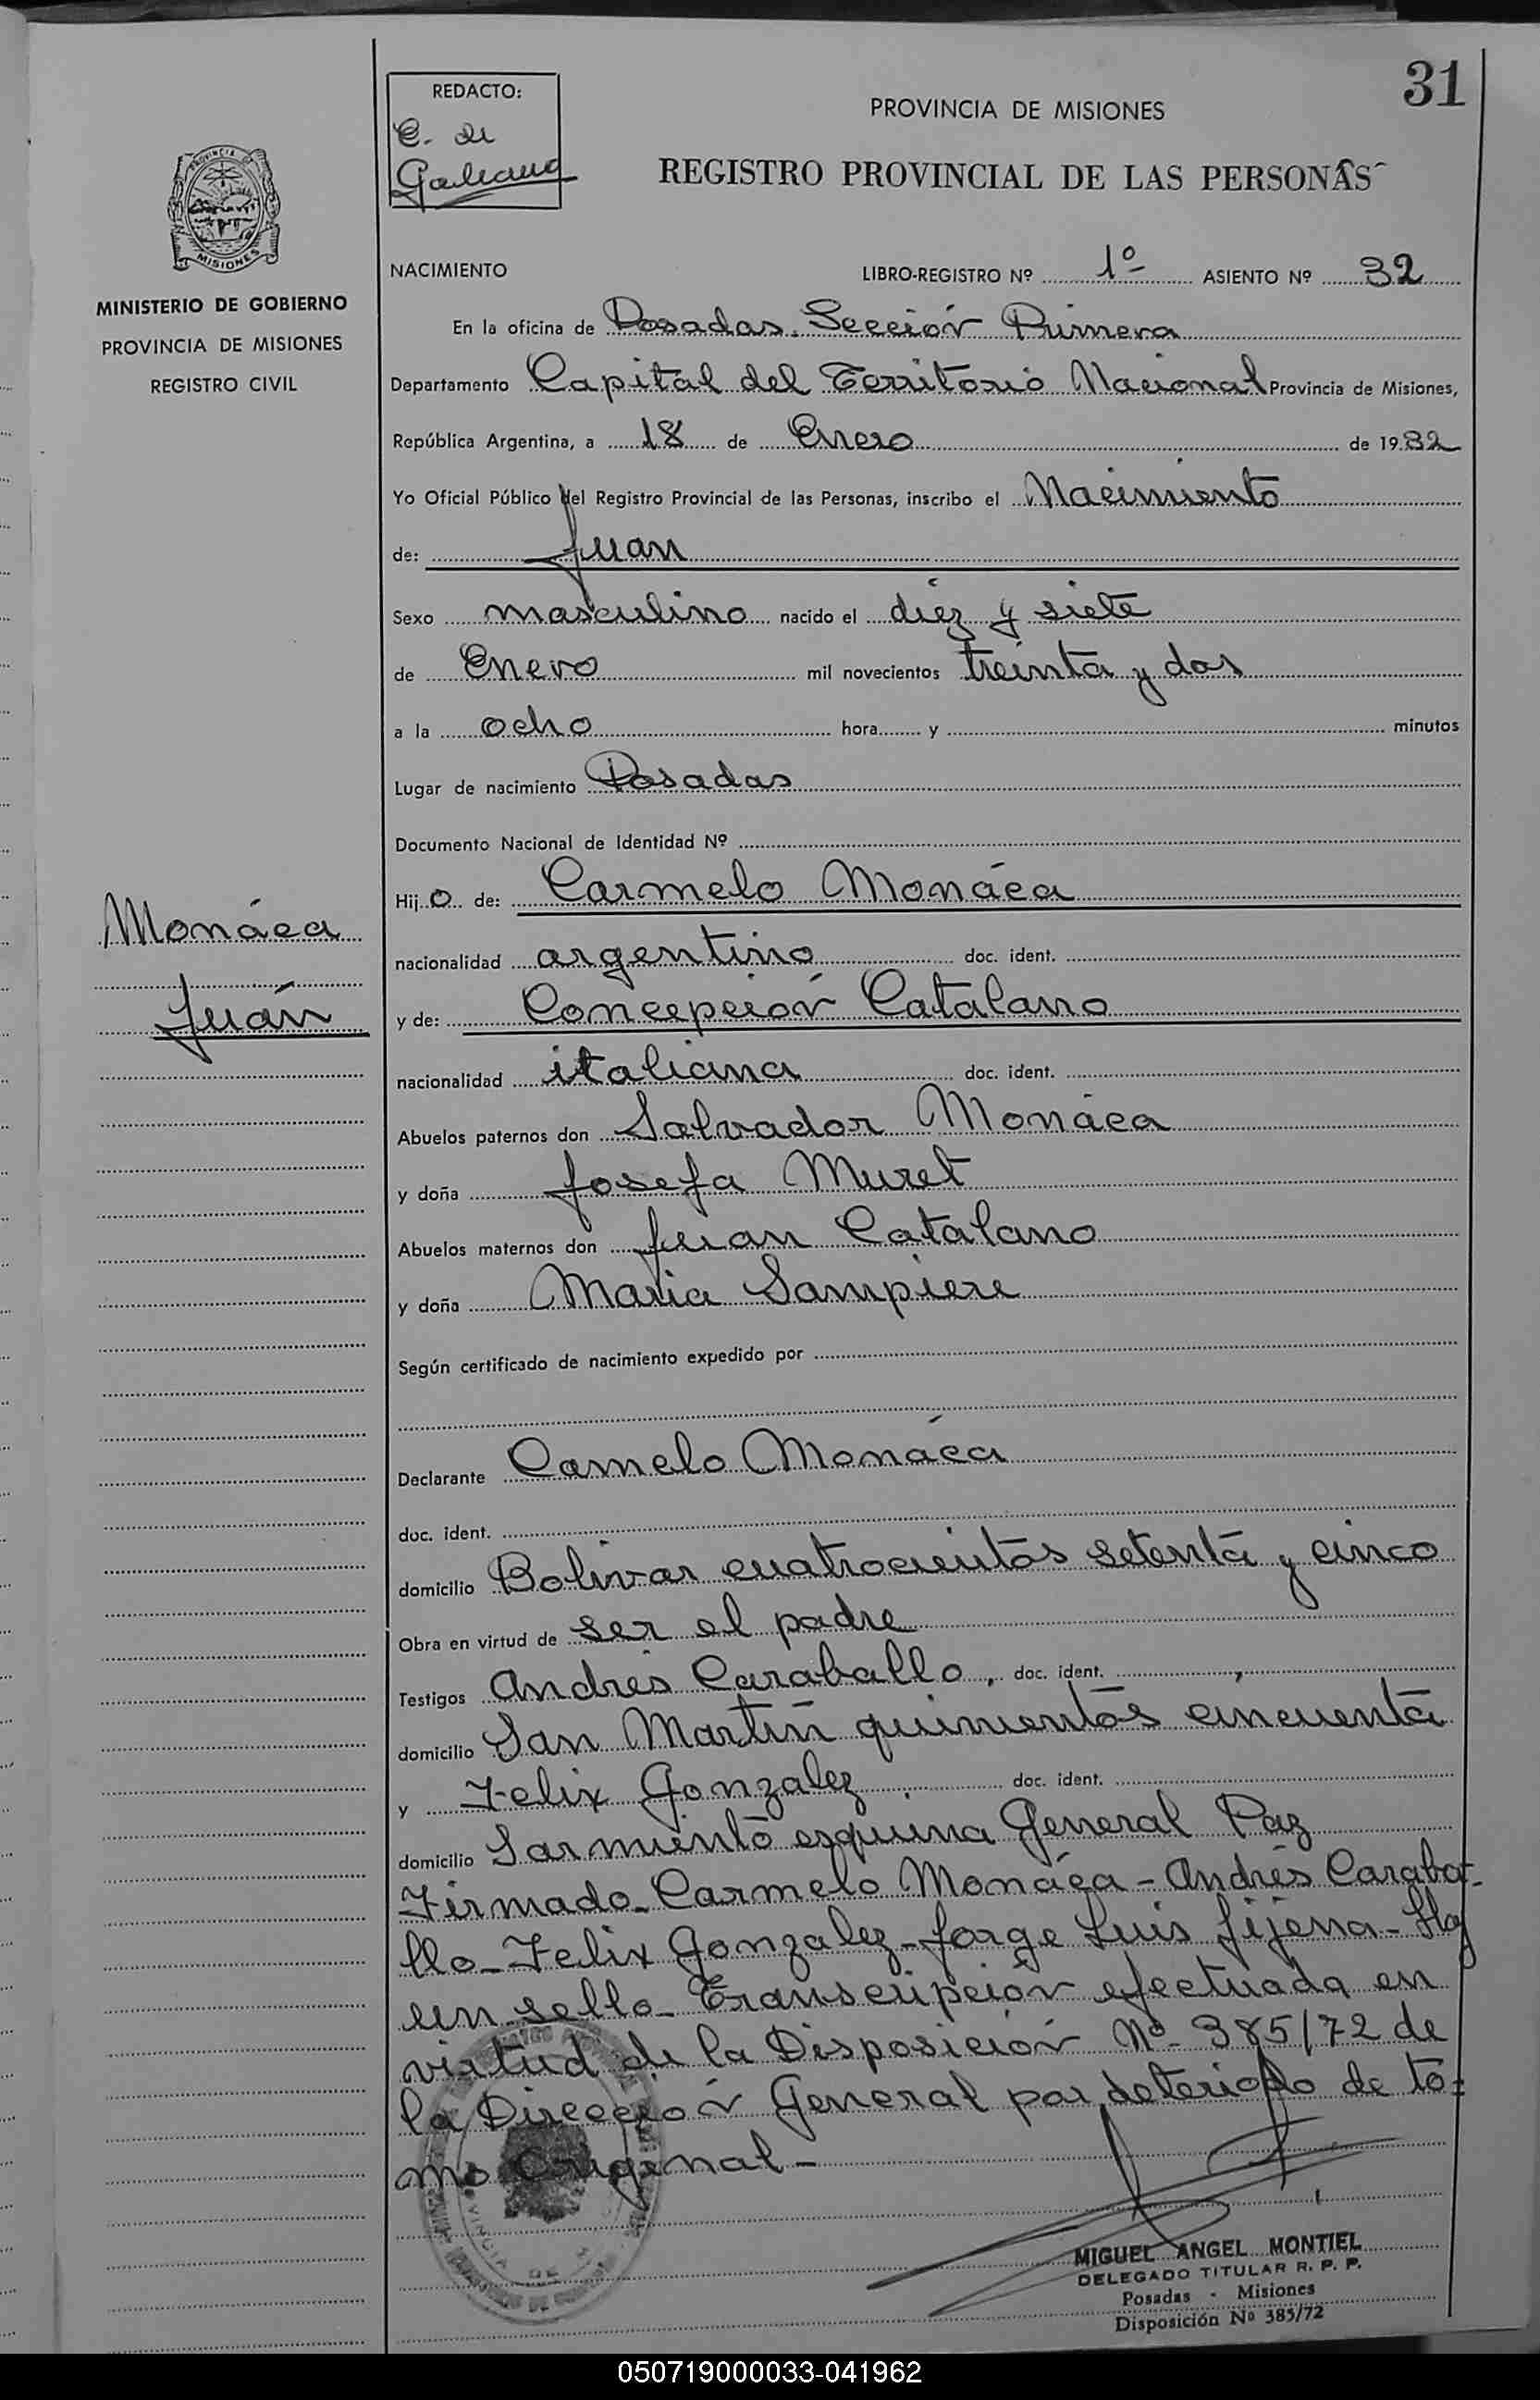 31
REDACTO:
C. de
Galeano
PROVINCIA DE MISIONES
REGISTRO PROVINCIAL DE LAS PERSONAS
PROVINCIA DE
MISIONES
MINISTERIO DE GOBIERNO
PROVINCIA DE MISIONES
REGISTRO CIVIL
NACIMIENTO LIBRO-REGISTRO Nº 1º ASIENTO Nº 32
En la oficina de Posadas. Sección Primera
Departamento Capital del Territorio Nacional Provincia de Misiones,
República Argentina, a 18 de Enero de 1932
Yo Oficial Público del Registro Provincial de las Personas, inscribo el Nacimiento
de: Juan
Sexo masculino nacido el diez y siete
de Enero mil novecientos treinta y dos
a la ocho hora y minutos
Lugar de nacimiento Posadas
Documento Nacional de Identidad Nº
Monáca
Juán
Hijo de: Carmelo Monáca
nacionalidad argentino doc. ident.
y de: Concepción Catalano
nacionalidad italiana doc. ident.
Abuelos paternos don Salvador Monáca
y doña Josefa Muret
Abuelos maternos don Juan Catalano
y doña Maria Sampiere
Según certificado de nacimiento expedido por
Declarante Camelo Monáca
doc. ident.
domicilio Bolivar cuatrocientos setenta y cinco
Obra en virtud de ser el padre
Testigos Andrés Caraballo, doc. ident. ,
domicilio San Martín quinientos cincuenta
y Felix Gonzalez doc. ident.
domicilio Sarmiento esquina General Paz
Firmado_ Carmelo Monáca - Andrés Caraba-
llo_ Felix Gonzalez_ Jorge Luis Jijena - Hay
un sello_ Transcripción efectuada en
virtud de la Disposición Nº 385/72 de
la Dirección General por deterioro de to=
mo Original -
MIGUEL ANGEL MONTIEL
DELEGADO TITULAR R. P. P.
Posadas - Misiones
Disposición Nº 385/72
050719000033-041962